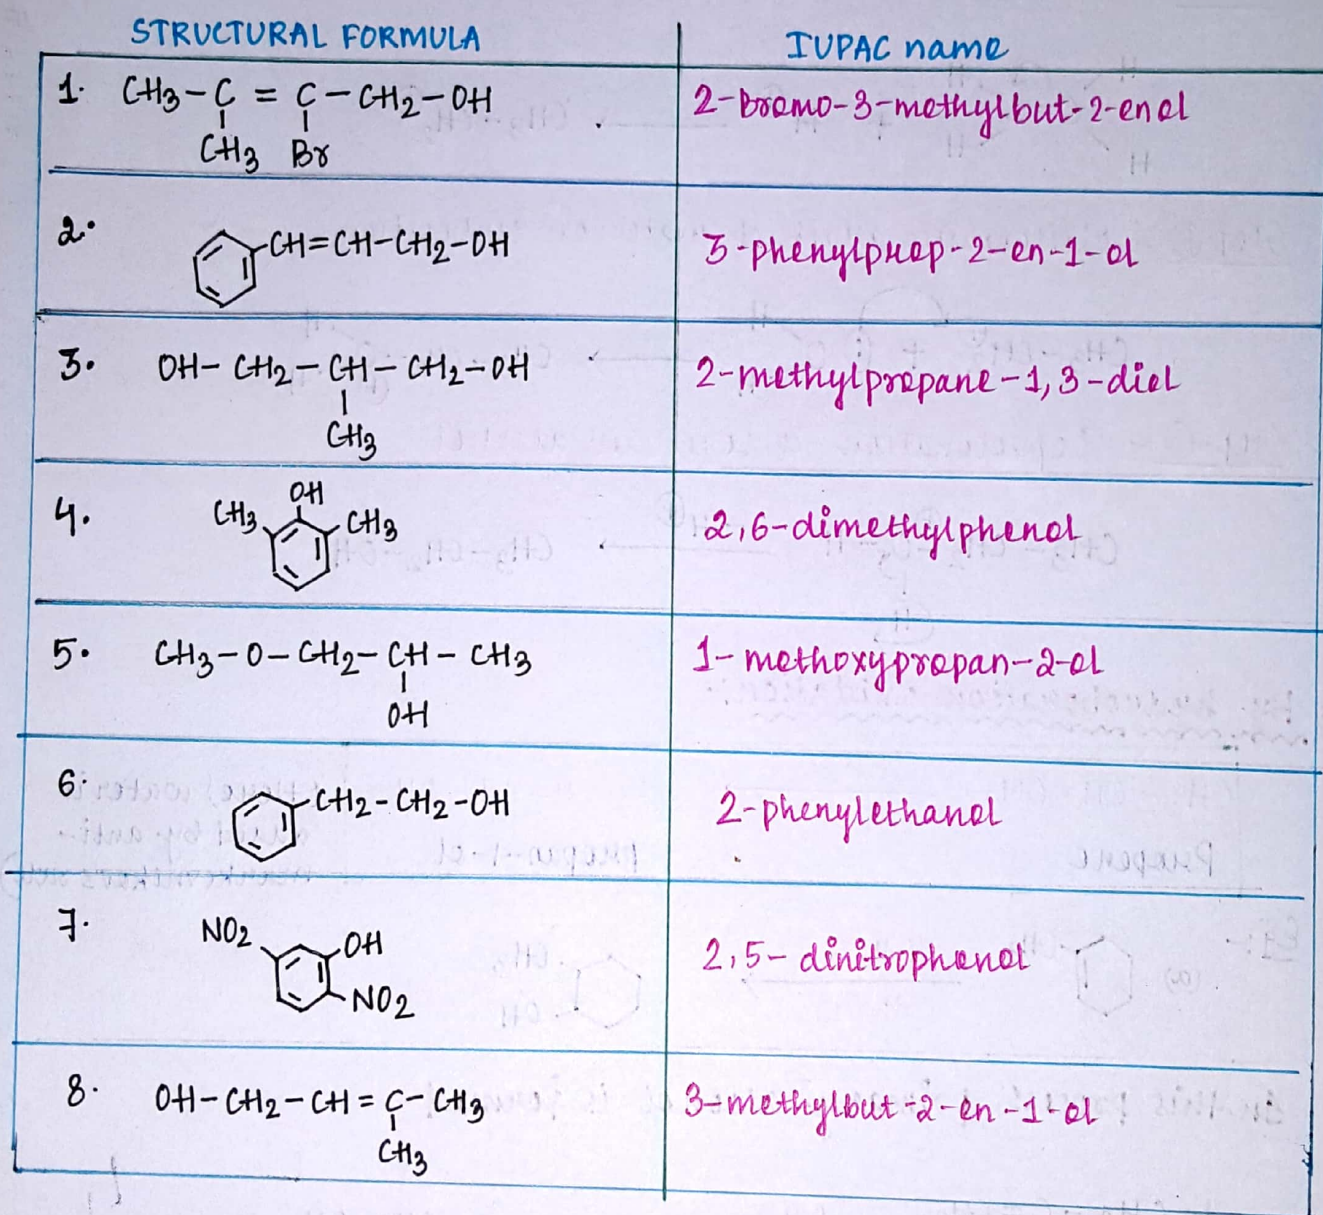 STRUCTURAL FORMULA IUPAC name
1. CH3-C = C-CH2-OH 2-bromo-3-methylbut-2-enol
CH3 Br
2. CH=CH-CH2-OH 3-phenylprop-2-en-1-ol
3. OH-CH2-CH-CH2-OH 2-methylpropane-1,3-diol
CH3
4. OH
CH3 CH3 2,6-dimethylphenol
5. CH3-O-CH2-CH-CH3 1-methoxypropan-2-ol
OH
6. CH2-CH2-OH 2-phenylethanol
7. NO2 OH 2,5-dinitrophenol
NO2
8. OH-CH2-CH=C-CH3 3-methylbut-2-en-1-ol
CH3